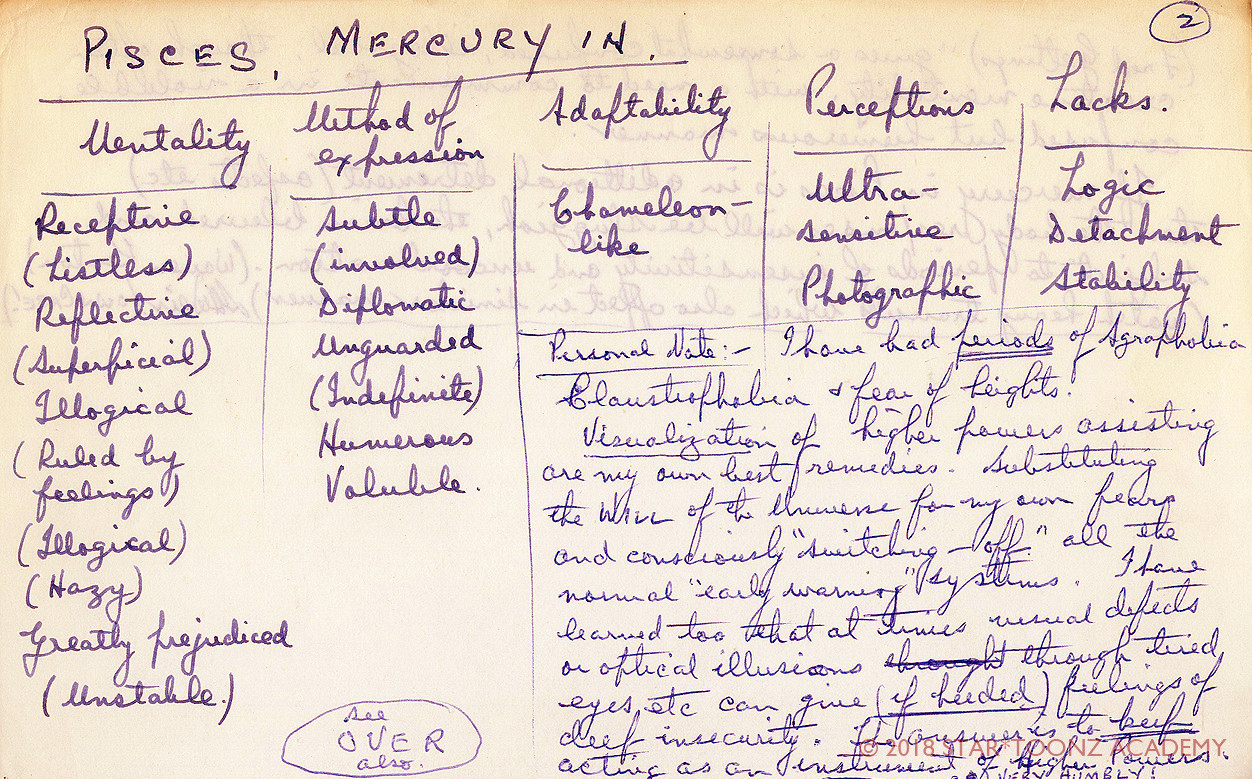 2
PISCES, MERCURY IN.
Mentality
Receptive
(Listless)
Reflective
(Superficial)
Illogical
(Ruled by
feelings)
(Illogical)
(Hazy)
Greatly prejudiced
(Unstable.)
Method of
expression
Subtle
(involved)
Diplomatic
Unguarded
(Indefinite)
Humerous
Voluble.
see
OVER
also.
Adaptability
Chameleon-
like
Perceptions
Ultra-
sensitive
Photographic
Lacks.
Logic
Detachment
Stability
Personal Note:- I have had periods of Agraphobia
Claustrophobia & fear of heights.
Visualization of higher powers assisting
are my own best remedies. Substituting
the WILL of the Universe for my own fears
and consciously "switching-off" all the
normal "early warning" systems. I have
learned too that at times visual defects
or optical illusions through tired
eyes, etc can give (if heeded) feelings of
deep insecurity. answer is to keep
acting as an instrument of higher Powers.
VERY HUMBLY!
© 2018 STAR*TOONZ ACADEMY